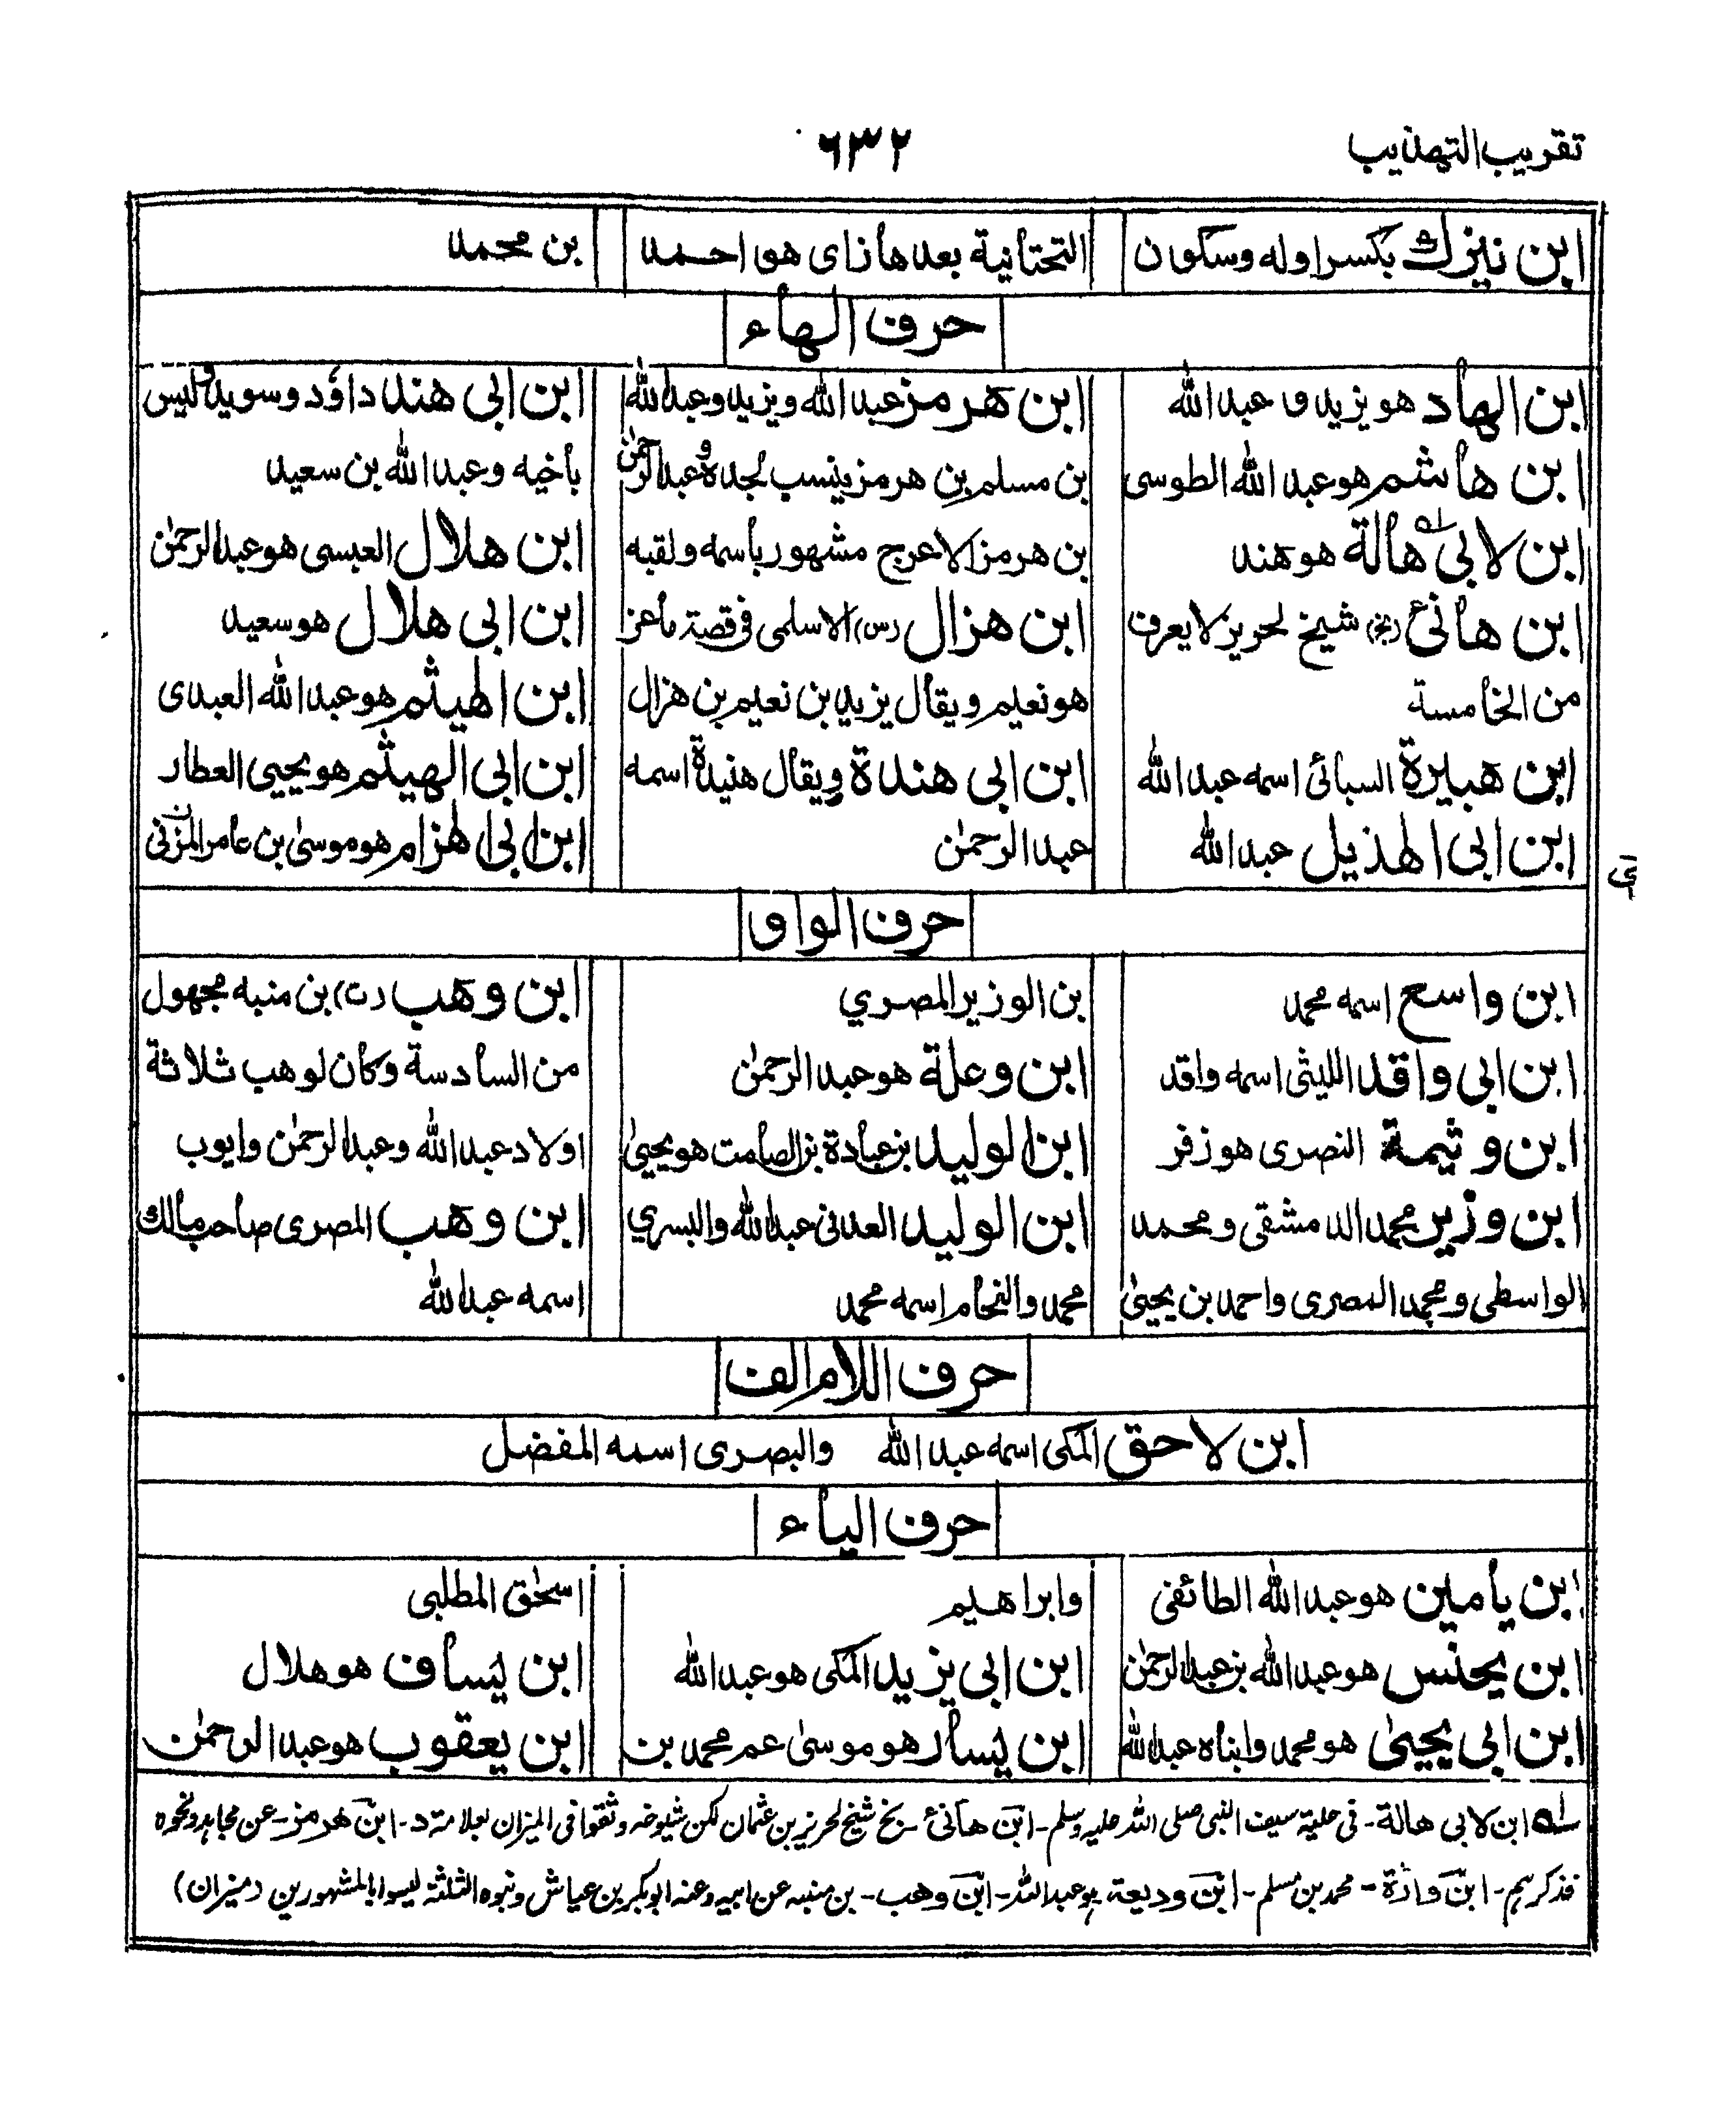 تقريب التهذيب
٦٣٢
ابن نيزك بكسر اوله وسكون
التحتانية بعدها زاى هو احمد
بن محمد
حرف الهاء
ابن الهاد هو يزيد و عبد الله
ابن هاشم هو عبد الله الطوسى
ابن لابى هالة هو هند
ابن هانئ (بخ) شيخ لحريز لا يعرف
من الخامسة
ابن هبيرة السبائى اسمه عبد الله
ابن ابى الهذيل عبد الله
ابن هرمز عبد الله ويزيد وعبد الله
بن مسلم بن هرمز ينسب لجده وعبد الرحمٰن
بن هرمز الاعرج مشهور باسمه ولقبه
ابن هزال (س) الاسلمى فى قصة ماعز
هو نعيم ويقال يزيد بن نعيم بن هزال
ابن ابى هندة ويقال هنيدة اسمه
عبد الرحمٰن
ابن ابى هند داؤد وسويد وليس
بأخيه وعبد الله بن سعيد
ابن هلال العبسى هو عبد الرحمٰن
ابن ابى هلال هو سعيد
ابن الهيثم هو عبد الله العبدى
ابن ابى الهيثم هو يحيى العطار
ابن ابى الهزام هو موسىٰ بن عامر المزنى
حرف الواو
ابن واسع اسمه محمد
ابن ابى واقد الليثى اسمه واقد
ابن وثيمة النصرى هو زفر
ابن وزير محمد الدمشقى و محمد
الواسطى و محمد المصرى واحمد بن يحيىٰ
بن الوزير المصري
ابن وعلة هو عبد الرحمٰن
ابن الوليد بن عبادة بن الصامت هو يحيىٰ
ابن الوليد العدنى عبد الله والبسري
محمد والفحام اسمه محمد
ابن وهب (ت) بن منبه مجهول
من السادسة وكان لوهب ثلاثة
اولاد عبد الله وعبد الرحمٰن وايوب
ابن وهب المصرى صاحب مالك
اسمه عبد الله
حرف اللام الف
ابن لاحق المكى اسمه عبد الله والبصرى اسمه المفضل
حرف الياء
ابن يامين هو عبد الله الطائفى
ابن يحنس هو عبد الله بن عبد الرحمٰن
ابن ابى يحيىٰ هو محمد وابناه عبد الله
وابراهيم
ابن ابى يزيد المكى هو عبد الله
ابن يسار هو موسىٰ عم محمد بن
اسحٰق المطلبى
ابن يساف هو هلال
ابن يعقوب هو عبد الرحمٰن
له ابن لابى هالة - فى حلية سيف النبى صلى الله عليه وسلم - ابن هانئ - بخ شيخ لحريز بن عثمان لكن شيوخه وثقوا فى الميزان بعلامة د - ابن هرمز - عن مجاهد ونحوه
فذكرهم - ابن وارة - محمد بن مسلم - ابن وديعة هو عبد الله - ابن وهب - بن منبه عن ابيه وعنه ابو بكر بن عياش ونبوه الثلثة ليسوا بالمشهورين (ميزان)